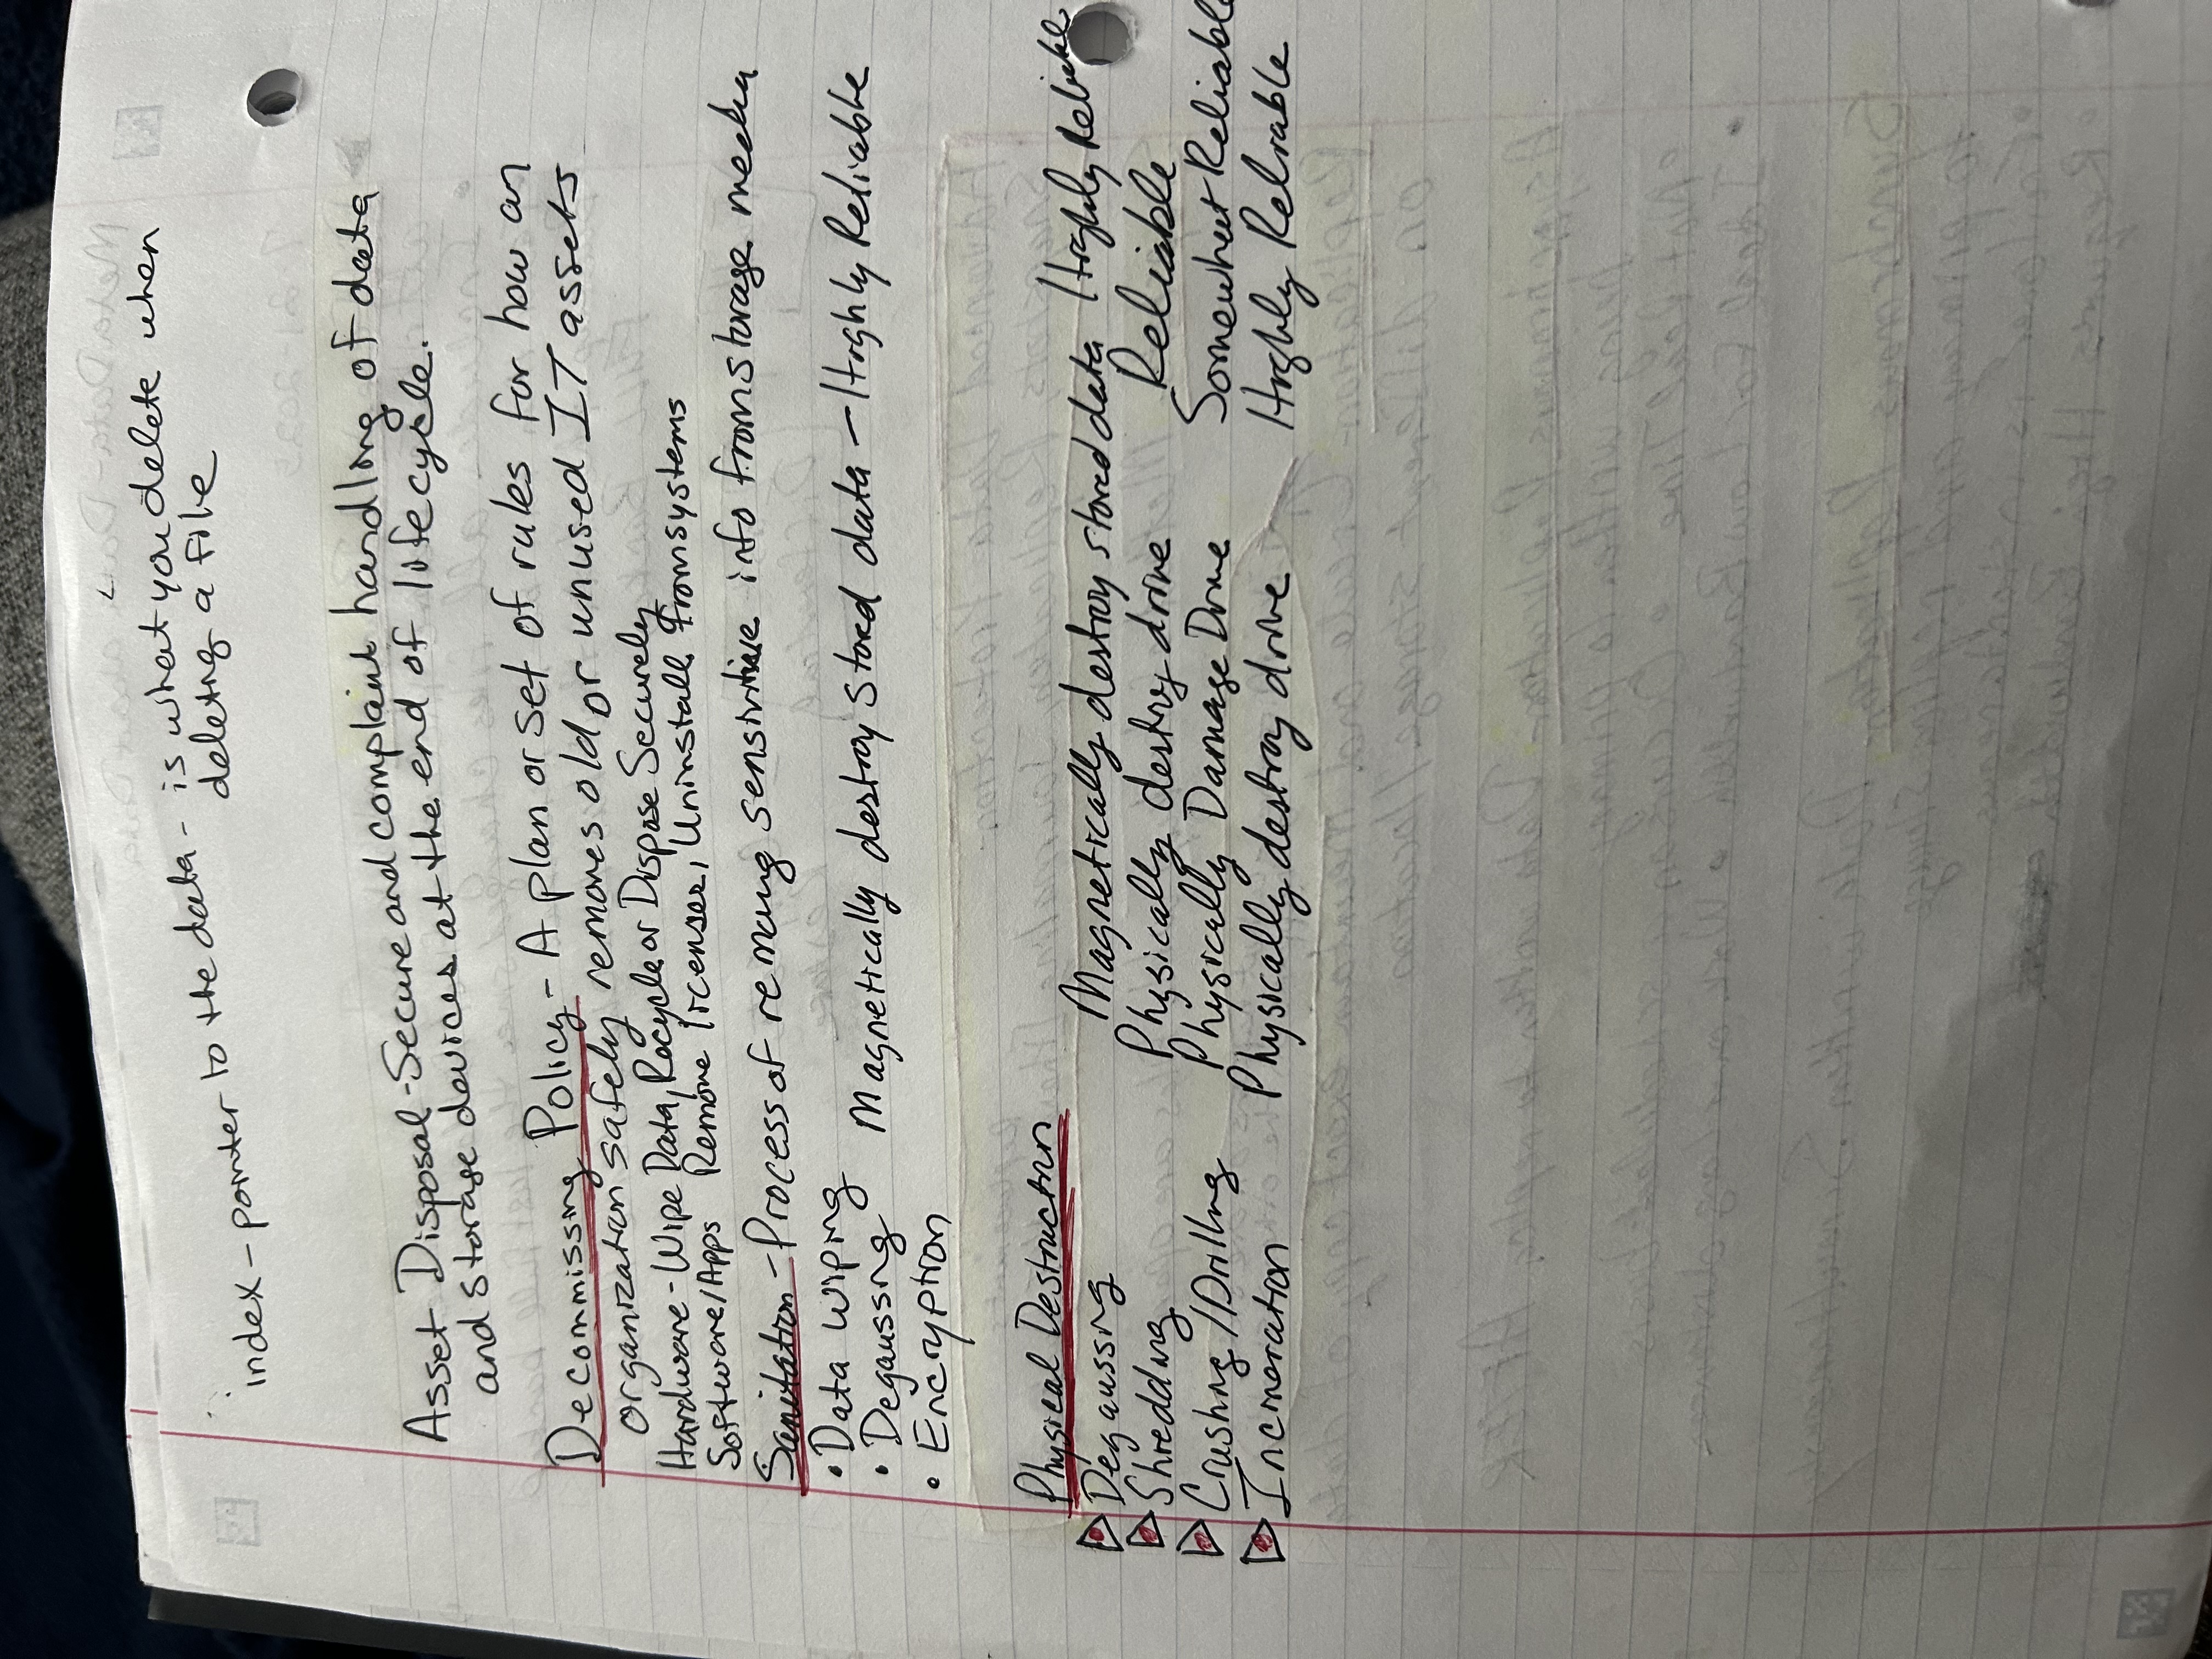 index - pointer to the data - is what you delete when
deleting a file
Asset Disposal - Secure and complaint handling of data
and storage devices at the end of lifecycle.
Decommissing Policy - A plan or set of rules for how an
organization safely removes old or unused IT assets
Hardware - Wipe Data, Recycle or Dispose Securely
Software/Apps Remove licenses, Uninstall from systems
Sanitation - Process of removing sensivtive info from storage media
• Data wiping
• Degaussing Magnetically destroy stored data - Highly Reliable
• Encryption
Physical Destruction
Degaussing Magnetically destroy stored data Highly Reliable
Shredding Physically destroy drive Reliable
Crushing/Drilling Physically Damage Drive Somewhat Reliable
Incineration Physically destroy drive Highly Reliable